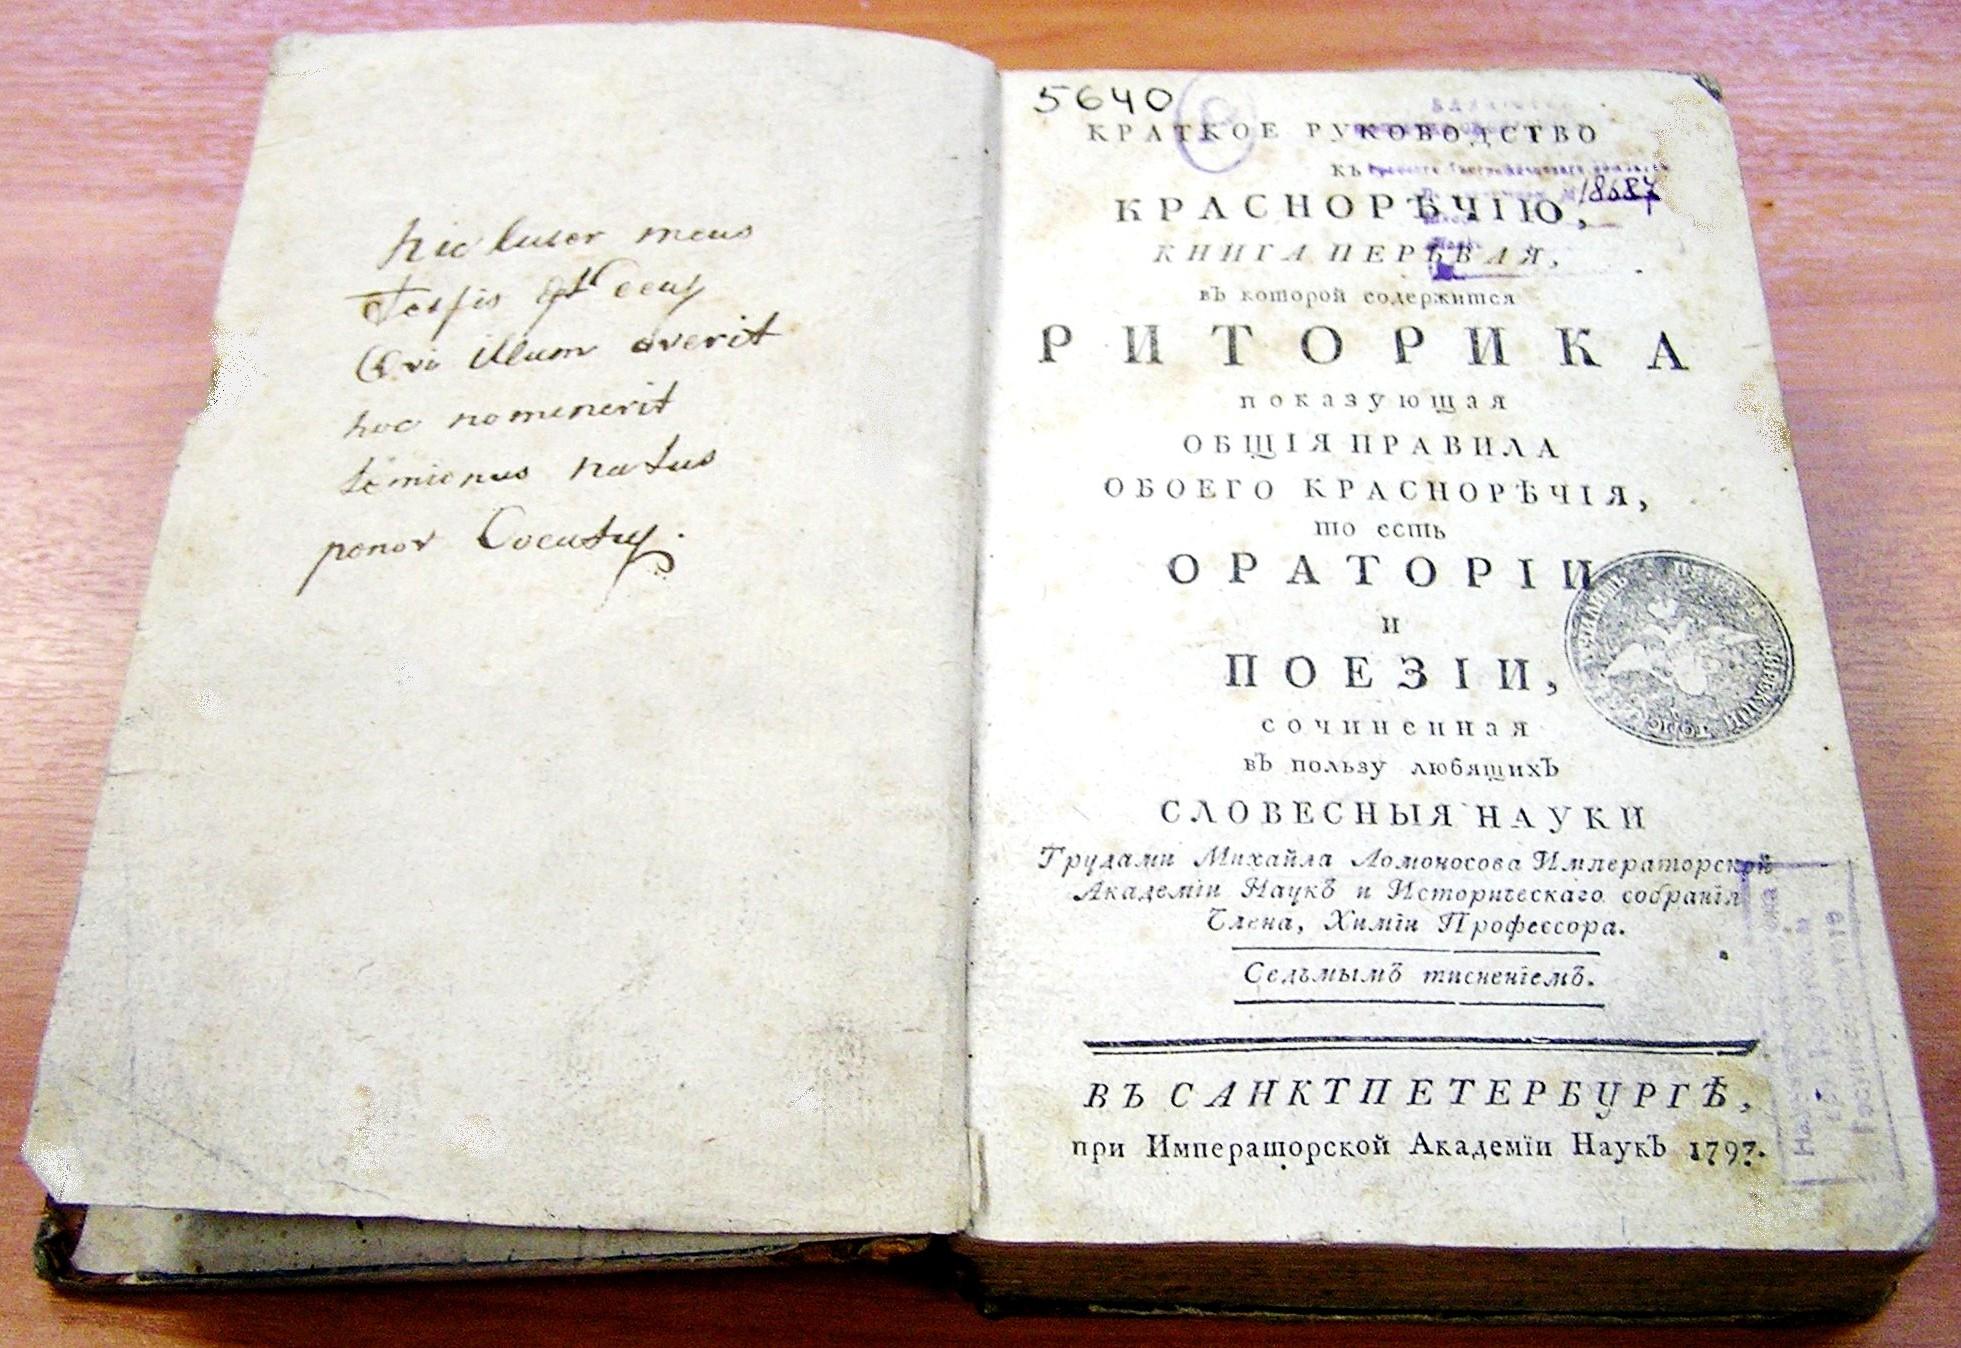 hic liber meus
Testis est
Qvi illum qverit
hoc nomen erit
natus
5640
КРАТКОЕ РУКОВОДСТВО
КЪ
18687
КРАСНОРѢЧІЮ,
КНИГА ПЕРЬВАЯ,
въ которой содержится
РИТОРИКА
показующая
ОБЩІЯ ПРАВИЛА
ОБОЕГО КРАСНОРѢЧІЯ,
то есть
ОРАТОРІИ
И
ПОЕЗІИ,
сочиненная
въ пользу любящихЪ
СЛОВЕСНЫЯ НАУКИ
Трудами Михайла Ломоносова Императорской
Академіи НаукЪ и Историческаго собранія
Члена, Химіи Профессора.
Седьмымъ тисненіемъ.
ВЪ САНКТПЕТЕРБУРГѢ,
при Императорской Академіи НаукЪ 1797.